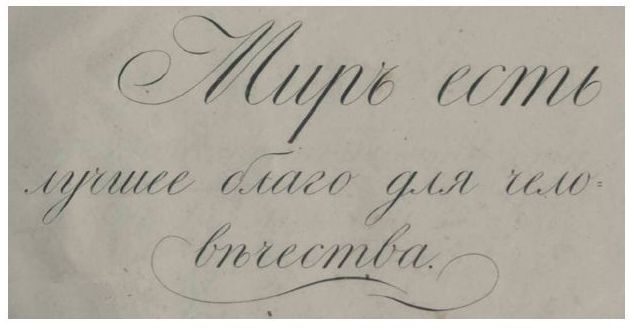 Миръ есть
лучшее благо для чело=
вѣчества.